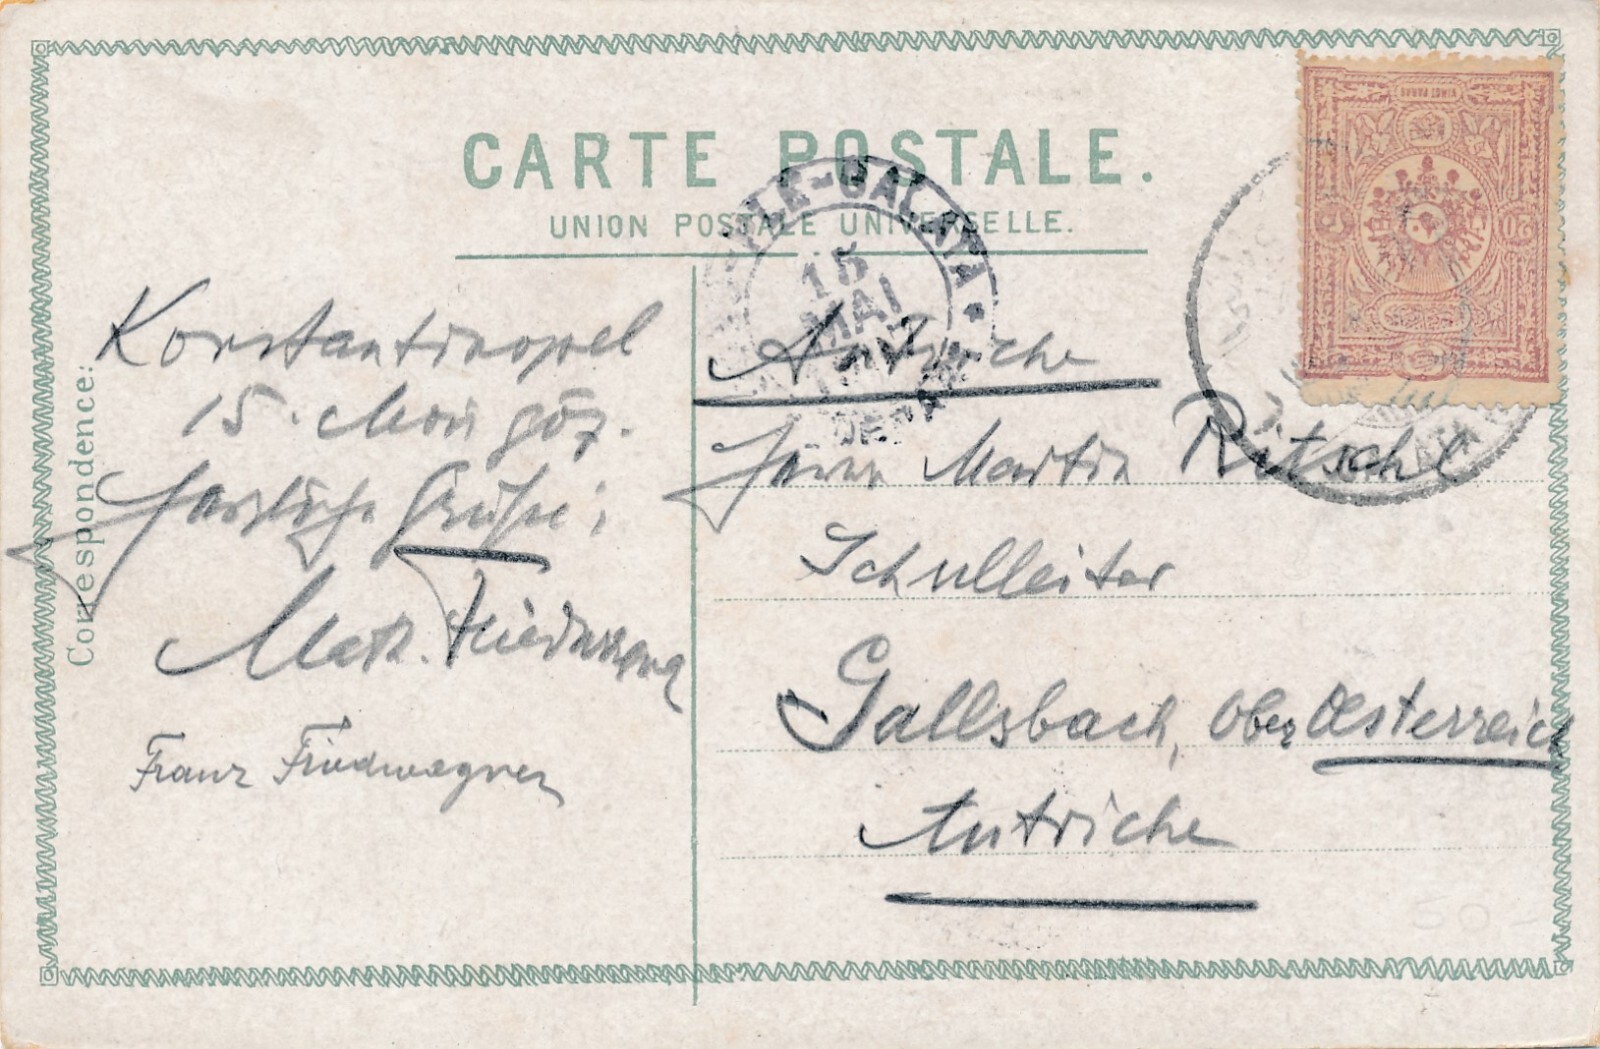 CARTE POSTALE.
UNION POSTALE UNIVERSELLE.
Correspondence:
Konstantinopel
15. Mai 907.
Herzliche Grüße:
Math. Friedwagner
Franz Friedwagner
GALATA
15
MAI
DEPART
Autriche
Herrn Martin Ritschl
Schulleiter
Gallsbach, Ober Oesterreich
Autriche
VINGT PARAS
20
50 -